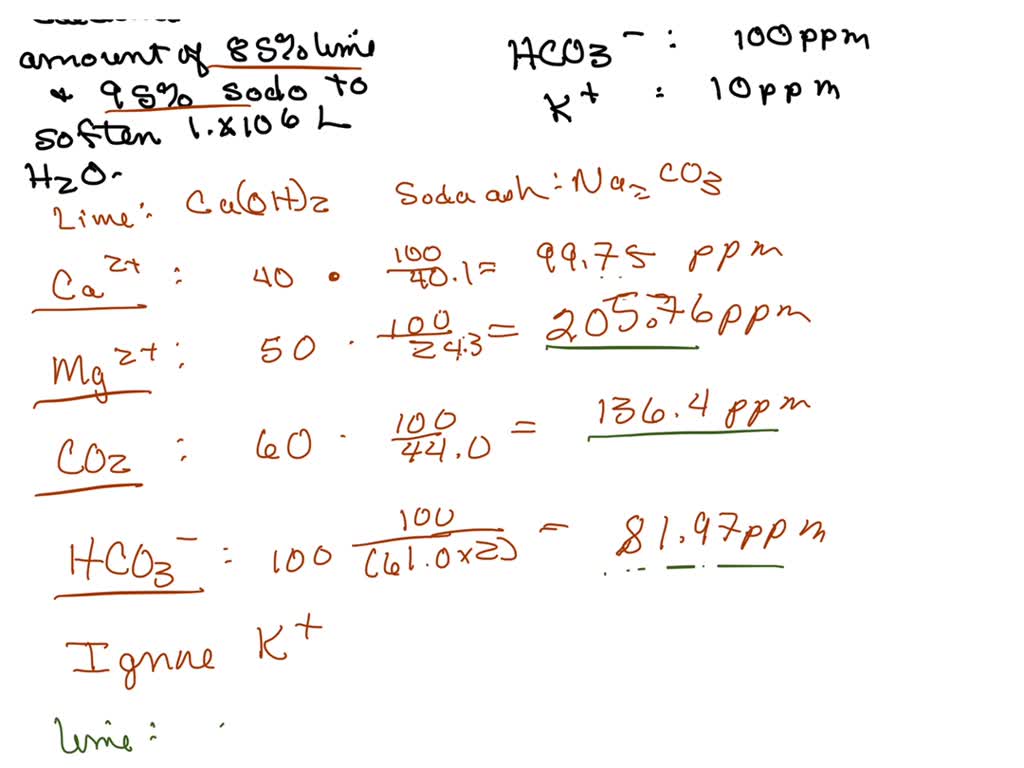 amount of 85% lime
& 95% soda to
soften 1.x106 L
H2O.
HCO3⁻ : 100ppm
K⁺ : 10ppm
Lime: Ca(OH)2 Soda ash: Na2CO3
Ca²⁺ : 40 · 100/40.1 = 99.75 ppm
Mg²⁺ : 50 · 100/24.3 = 205.76 ppm
CO2 : 60 · 100/44.0 = 136.4 ppm
HCO3⁻ : 100 100/(61.0x2) = 81.97ppm
Ignore K⁺
Lime: